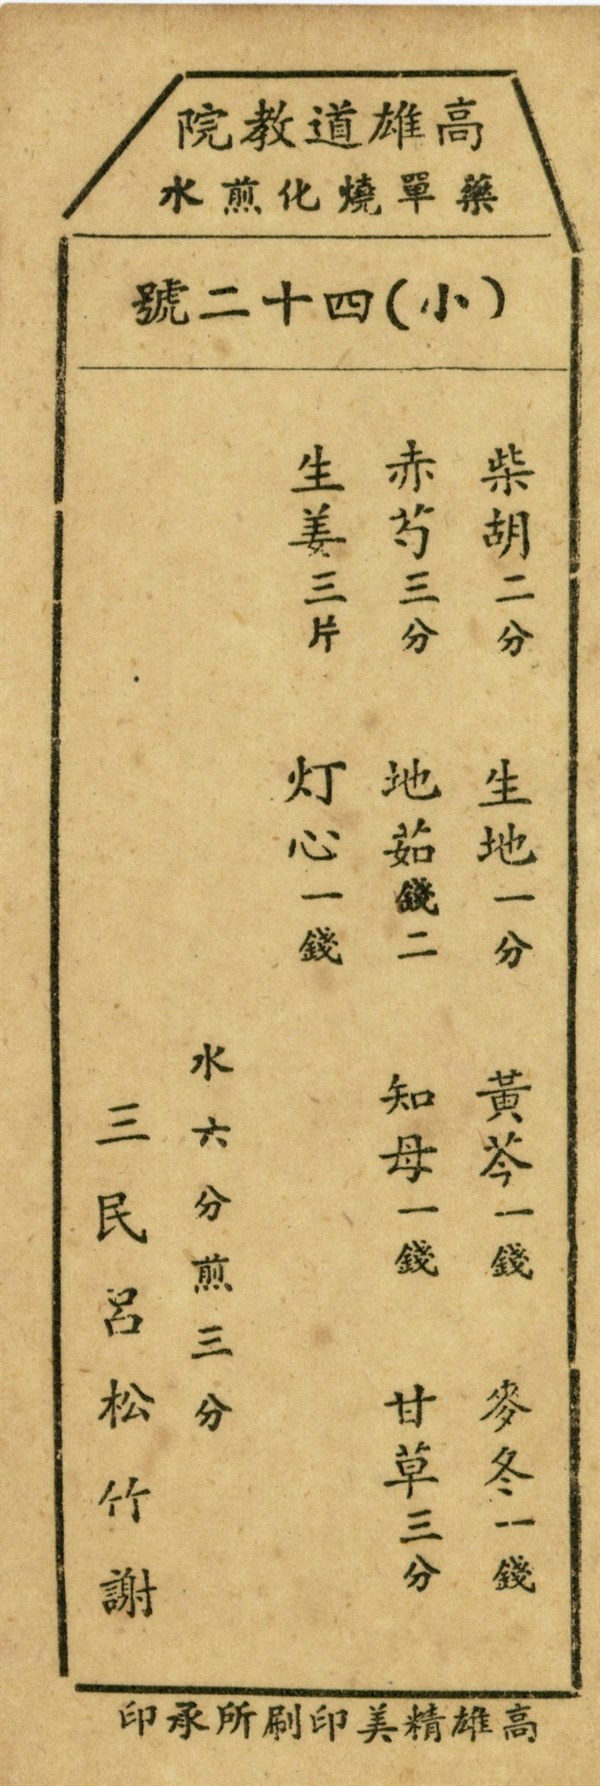 高雄道教院
藥單燒化煎水
(小)四十二號
柴胡二分 生地一分 黃芩一錢 麥冬一錢
赤芍三分 地茹錢二 知母一錢 甘草三分
生姜三片 灯心一錢
水六分煎三分
三民呂松竹謝
高雄精美印刷所承印